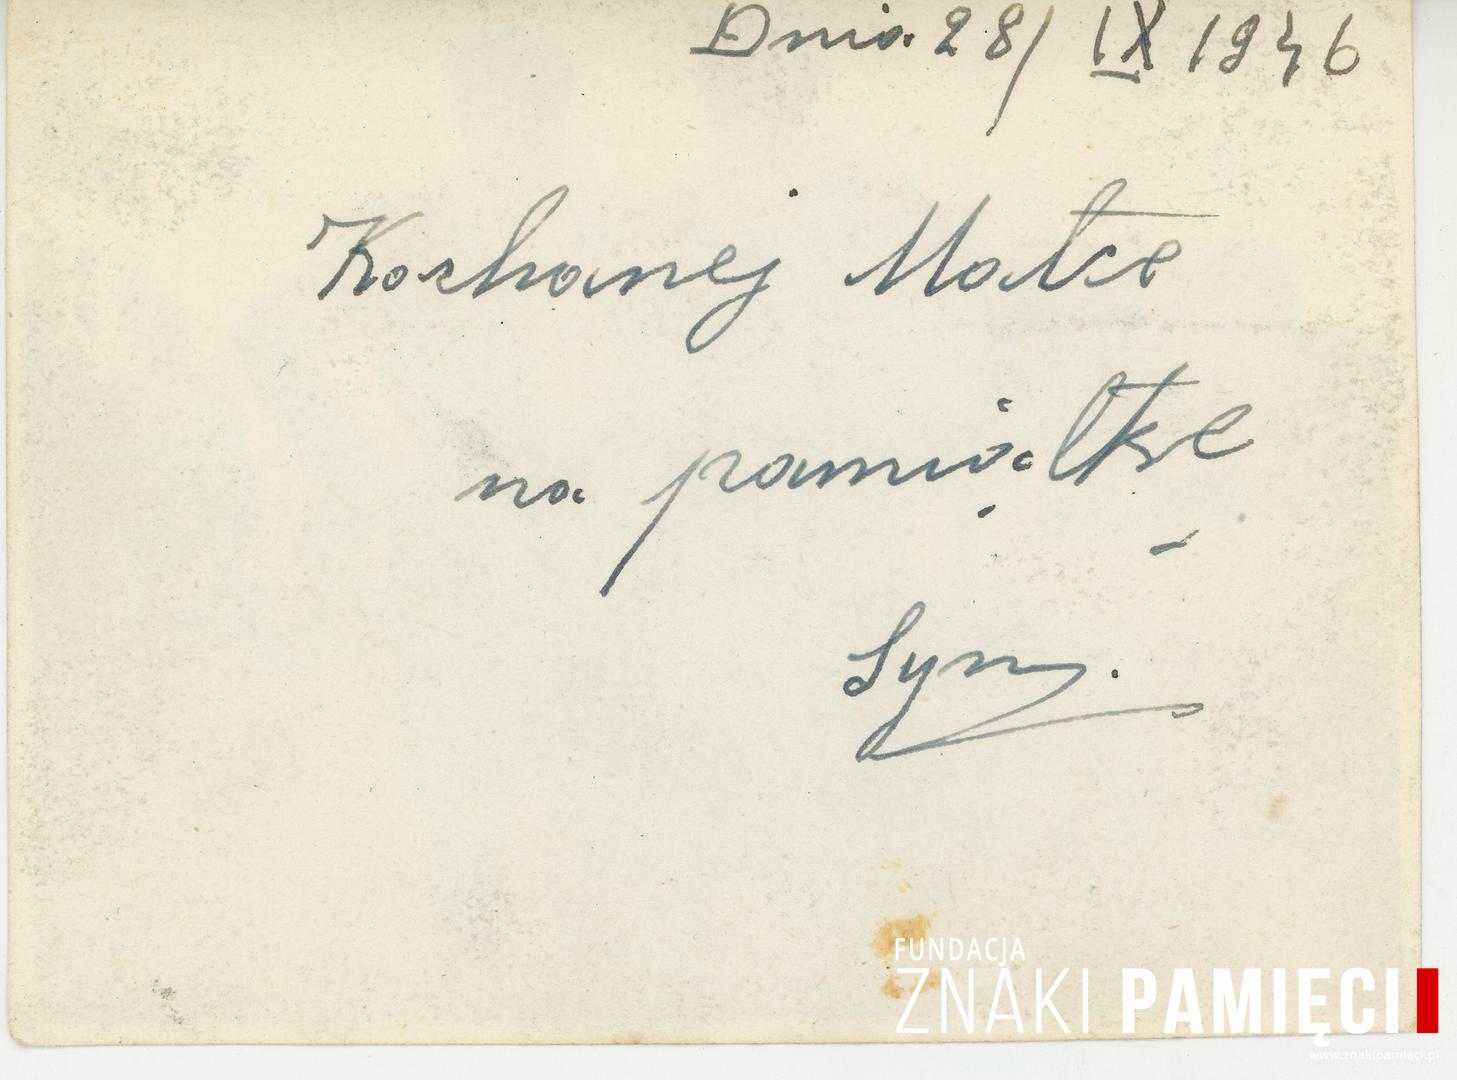 Dnia 28/IX 1946
Kochanej Matce
na pamiątkę
Syn.
FUNDACJA
ZNAKI PAMIĘCI
www.znakipamieci.pl